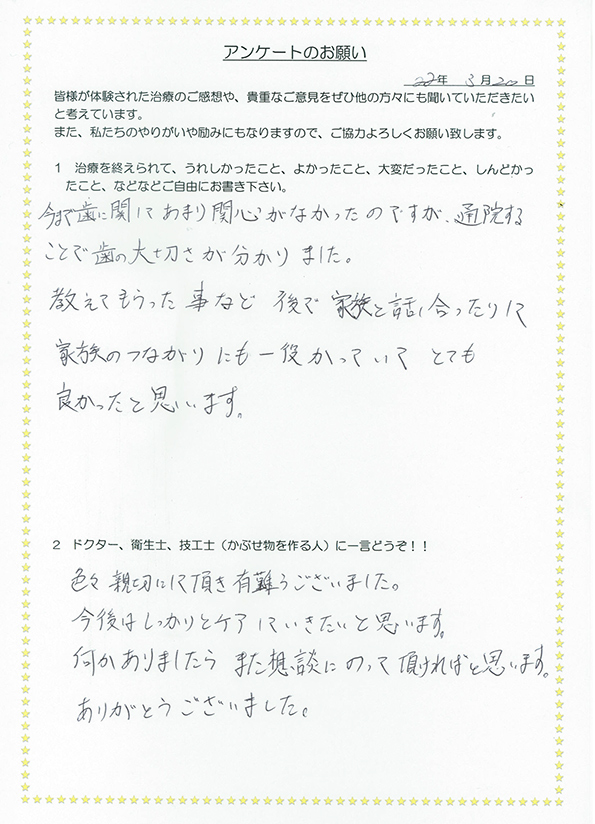 アンケートのお願い
22年 3月20日
皆様が体験された治療のご感想や、貴重なご意見をぜひ他の方々にも聞いていただきたい
と考えています。
また、私たちのやりがいや励みにもなりますので、ご協力よろしくお願い致します。
1 治療を終えられて、うれしかったこと、よかったこと、大変だったこと、しんどかっ
たこと、などなどご自由にお書き下さい。
今まで歯に関してあまり関心がなかったのですが、通院する
ことで歯の大切さが分かりました。
教えてもらった事など 後で 家族と話し合ったりして
家族のつながりにも一役かっていて とても
良かったと思います。
2 ドクター、衛生士、技工士（かぶせ物を作る人）に一言どうぞ！！
色々親切にして頂き有難うございました。
今後はしっかりとケアしていきたいと思います。
何かありましたら また想談にのって頂ければと思います。
ありがとうございました。